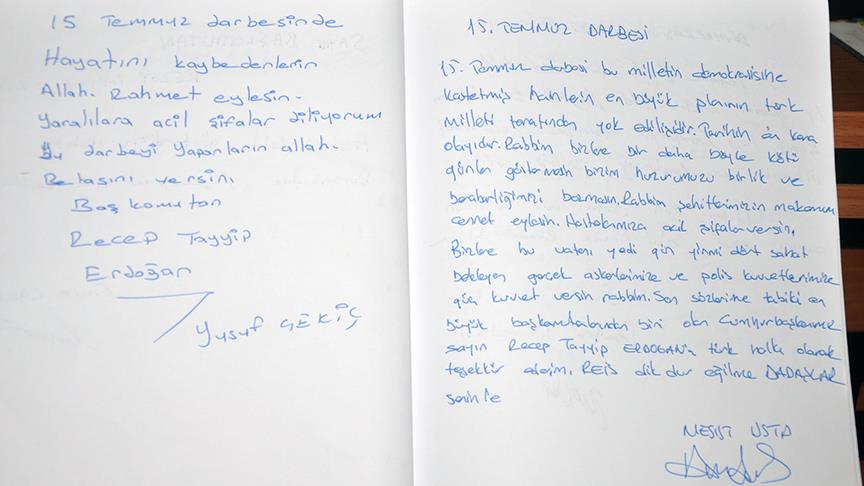 15 Temmuz darbesinde
Hayatını kaybedenlerin
Allah. Rahmet eylesin.
yaralılara acil şifalar diliyorum
Bu darbeyi yapanların allah.
Belasını versin.
Baş komutan
Recep Tayyip
Erdoğan
Yusuf ÇEKİÇ
15. TEMMUZ DARBESİ
15. Temmuz darbesi bu milletin demokrasisine
kastetmiş hainlerin en büyük planının türk
milleti tarafından yok edilişidir. Tarihin en kara
olayıdır. Rabbim bizlere bir daha böyle kötü
günler göstermesin bizim huzurumuzu birlik ve
beraberliğimizi bozmasın. Rabbim şehitlerimizin makamını
cennet eylesin. Hastalarımıza acil şifalar versin.
Bizlere bu vatanı yedi gün yirmi dört sahat
bekleyen gerçek askerlerimize ve polis kuvvetlerimize
güç kuvvet versin rabbim. Son sözlerime tabiki en
büyük başkomutanlarından biri olan Cumhurbaşkanımız
sayın Recep Tayyip ERDOĞAN'a türk halkı olarak
teşekkür ederim. REİS dik dur eğilme DADAŞLAR
seninle
MESUT USTA